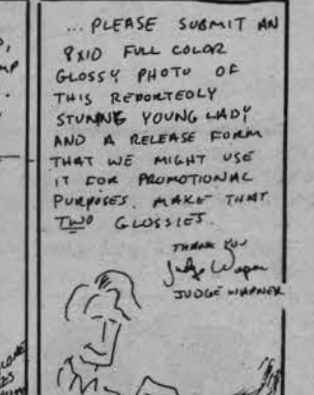 ... PLEASE SUBMIT AN
8X10 FULL COLOR
GLOSSY PHOTO OF
THIS REPORTEDLY
STUNNING YOUNG LADY
AND A RELEASE FORM
THAT WE MIGHT USE
IT FOR PROMOTIONAL
PURPOSES. MAKE THAT
TWO GLOSSIES.
THANK YOU
Judge Wapner
JUDGE WAPNER